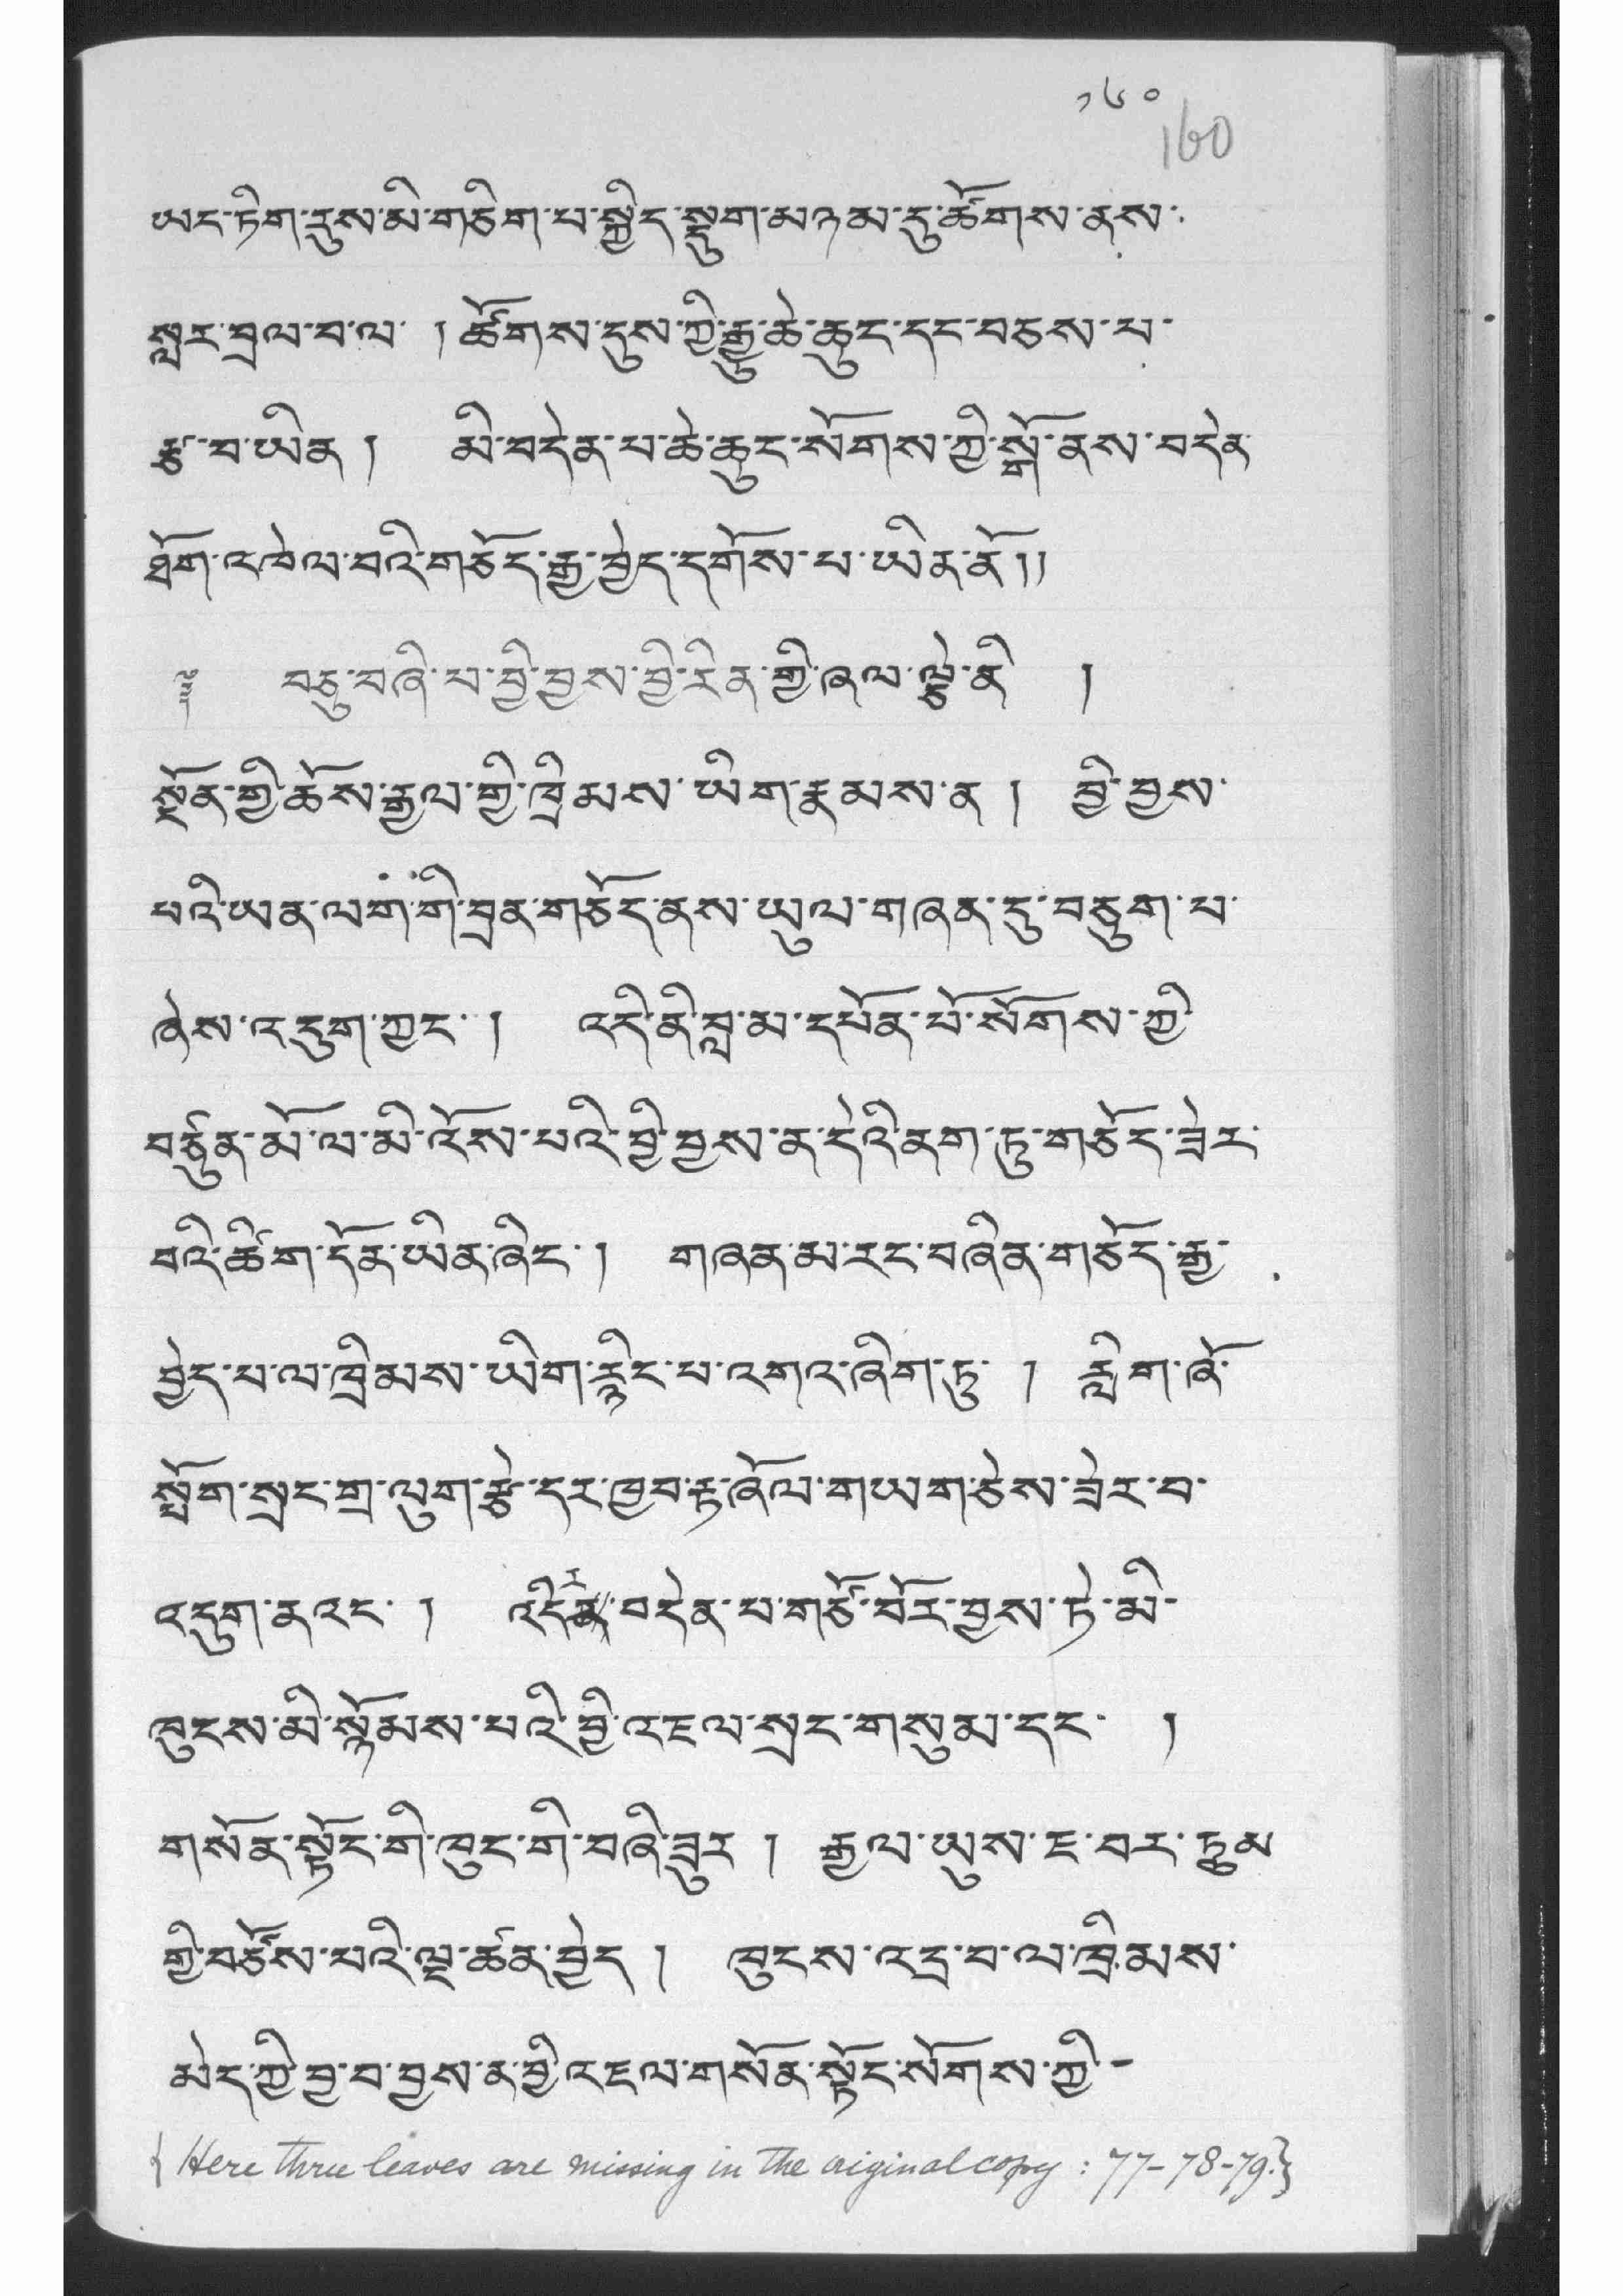 ༡༦༠
160
ཡང་ཏིག་དུས་མི་གཅིག་པ་སྐྱིད་སྡུག་མཉམ་དུ་ཚོགས་ནས་
སླར་བྲལ་བ་ལ་ ། ཚོགས་དུས་ཀྱི་རྒྱུ་ཆེ་ཆུང་དང་བཅས་པ་
རྩ་བ་ཡིན ། མི་བདེན་པ་ཆེ་ཆུང་སོགས་ཀྱི་སྒོ་ནས་བདེན
ཐོག་འཁེལ་བའི་གཅོད་རྒྱ་བྱེད་དགོས་པ་ཡིན་ནོ །།
༈ བཅུ་བཞི་པ་བྱི་བྱས་བྱི་རིན་གྱི་ཞལ་ལྕེ་ནི །
སྔོན་གྱི་ཆོས་རྒྱལ་གྱི་ཁྲིམས་ཡིག་རྣམས་ན ། བྱི་བྱས་
པའི་ཡན་ལག་གི་བྲན་གཅོད་ནས་ཡུལ་གཞན་དུ་བཅུག་པ་
ཞེས་འདུག་ཀྱང་ ། འདི་ནི་བླ་མ་དཔོན་པོ་སོགས་ཀྱི
བཙུན་མོ་ལ་མི་འོས་པའི་བྱི་བྱས་ན་དེའི་ནག་ཏུ་གཅོད་ཟེར་
བའི་ཚིག་དོན་ཡིན་ཞིང་ ། གཞན་མ་རང་བཞིན་གཅོད་རྒྱ་
བྱེད་པ་ལ་ཁྲིམས་ཡིག་རྙིང་པ་འགའ་ཞིག་ཏུ་ ། རླིག་ཞོ་
སློག་སྲང་གྲ་ལུག་རྩེ་དར་ཁྱབ་རྟ་ཞོལ་གཡག་ཅེས་ཟེར་བ་
འདུག་ནའང་ ། འདིར་བདེན་པ་གཙོ་བོར་བྱས་ཏེ་མི་
ཁུངས་མི་སྙོམས་པའི་བྱི་འཇལ་སྲང་གསུམ་དང་ །
གསོན་སྟོང་གི་ཁུང་གི་བཞི་ཟུར ། རྒྱལ་ཡུས་ཇ་བར་ཏྲུམ
གྱི་བཅོས་པའི་ལྔ་ཚན་བྱེད ། ཁུངས་འདྲ་བ་ལ་ཁྲིམས་
མེད་ཀྱི་བྱ་བ་བྱས་ན་བྱི་འཇལ་གསོན་སྟོང་སོགས་ཀྱི -
{ Here three leaves are missing in the original copy : 77-78-79.}